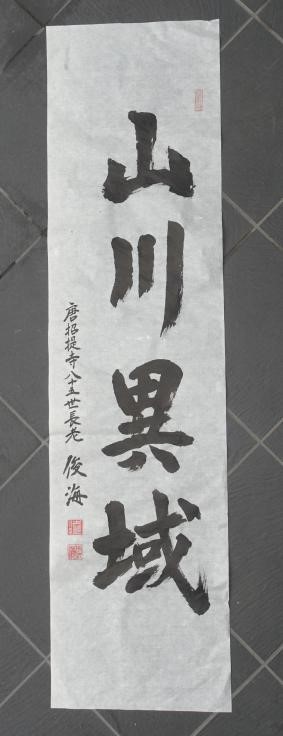 山川異域
唐招提寺八十五世長老 俊海